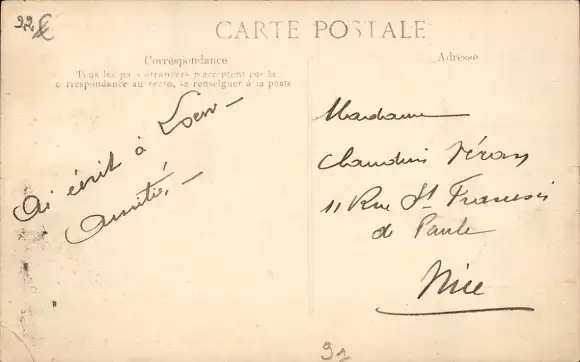 CARTE POSTALE
Correspondance
Tous les pays étrangers n'acceptent pas la
correspondance au recto, se renseigner à la poste
Adresse
Ai écrit à
Amitiés
Madame
11 Rue St François
de Paule
Nice
91